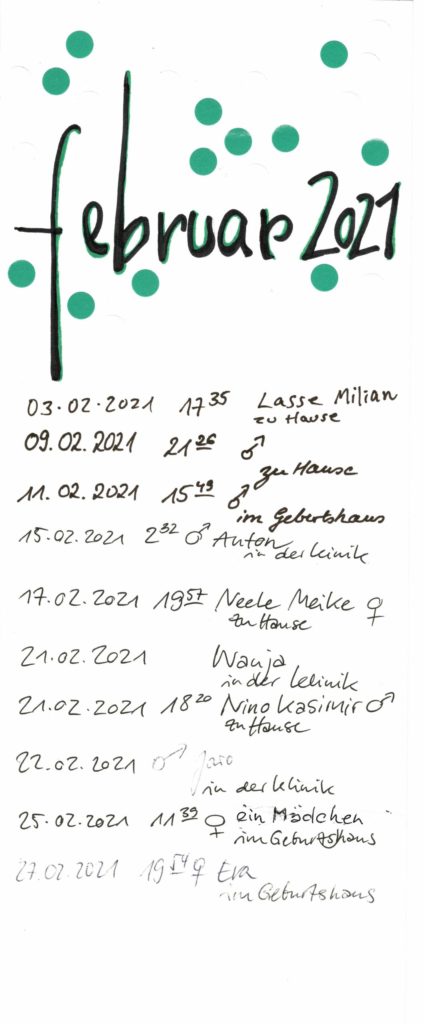 februar 2021
03.02.2021 17³⁵ Lasse Milian
zu Hause
09.02.2021 21²⁶ ♂
zu Hause
11.02.2021 15⁴⁹ ♂
im Gebertshaus
15.02.2021 2³² ♂ Anton
in der Klinik
17.02.2021 19⁵⁷ Neele Meike ♀
zu Hause
21.02.2021 Wanja
in der Klinik
21.02.2021 18²⁰ Nino Kasimir ♂
zu Hause
22.02.2021 ♂ Jaro
in der Klinik
25.02.2021 11³⁹ ♀ ein Mädchen
im Geburtshaus
27.02.2021 19⁵⁴ ♀ Eva
im Geburtshaus